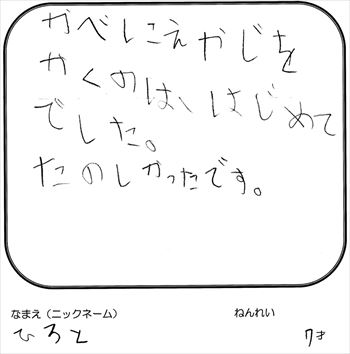 かべにえかじを
かくのは、はじめて
でした。
たのしかったです。
なまえ（ニックネーム） ねんれい
ひろと 7才